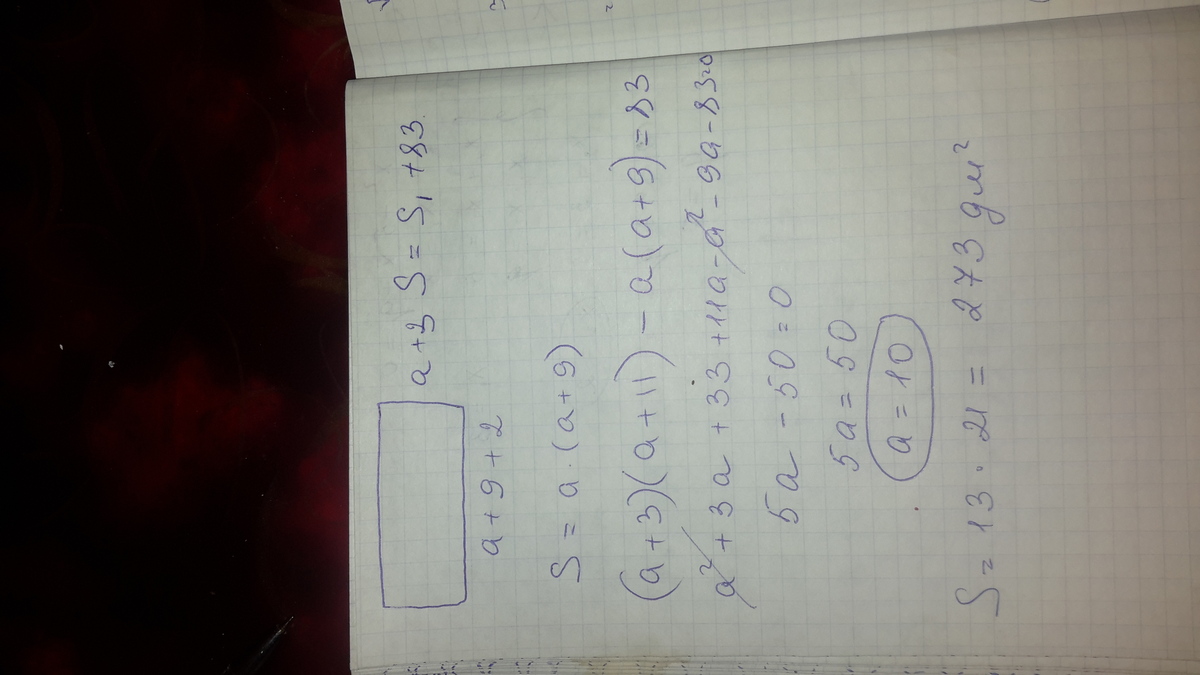 a+3 S = S₁ + 83.
a+9+2
S = a · (a+9)
(a+3)(a+11) - a(a+9) = 83
a² + 3a + 33 + 11a - a² - 9a - 83=0
5a - 50 = 0
5a = 50
a = 10
S = 13 · 21 = 273 дм²